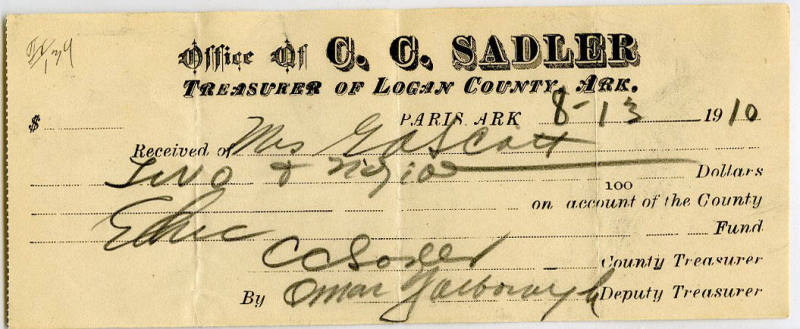 Office Of C. C. SADLER
TREASURER OF LOGAN COUNTY, ARK.
$ PARIS, ARK 8-13 1910
Received of Mrs G A Scott
Two & Dollars
100
on account of the County
Fund
C C Sadler County Treasurer
By Omar Yarborough Deputy Treasurer